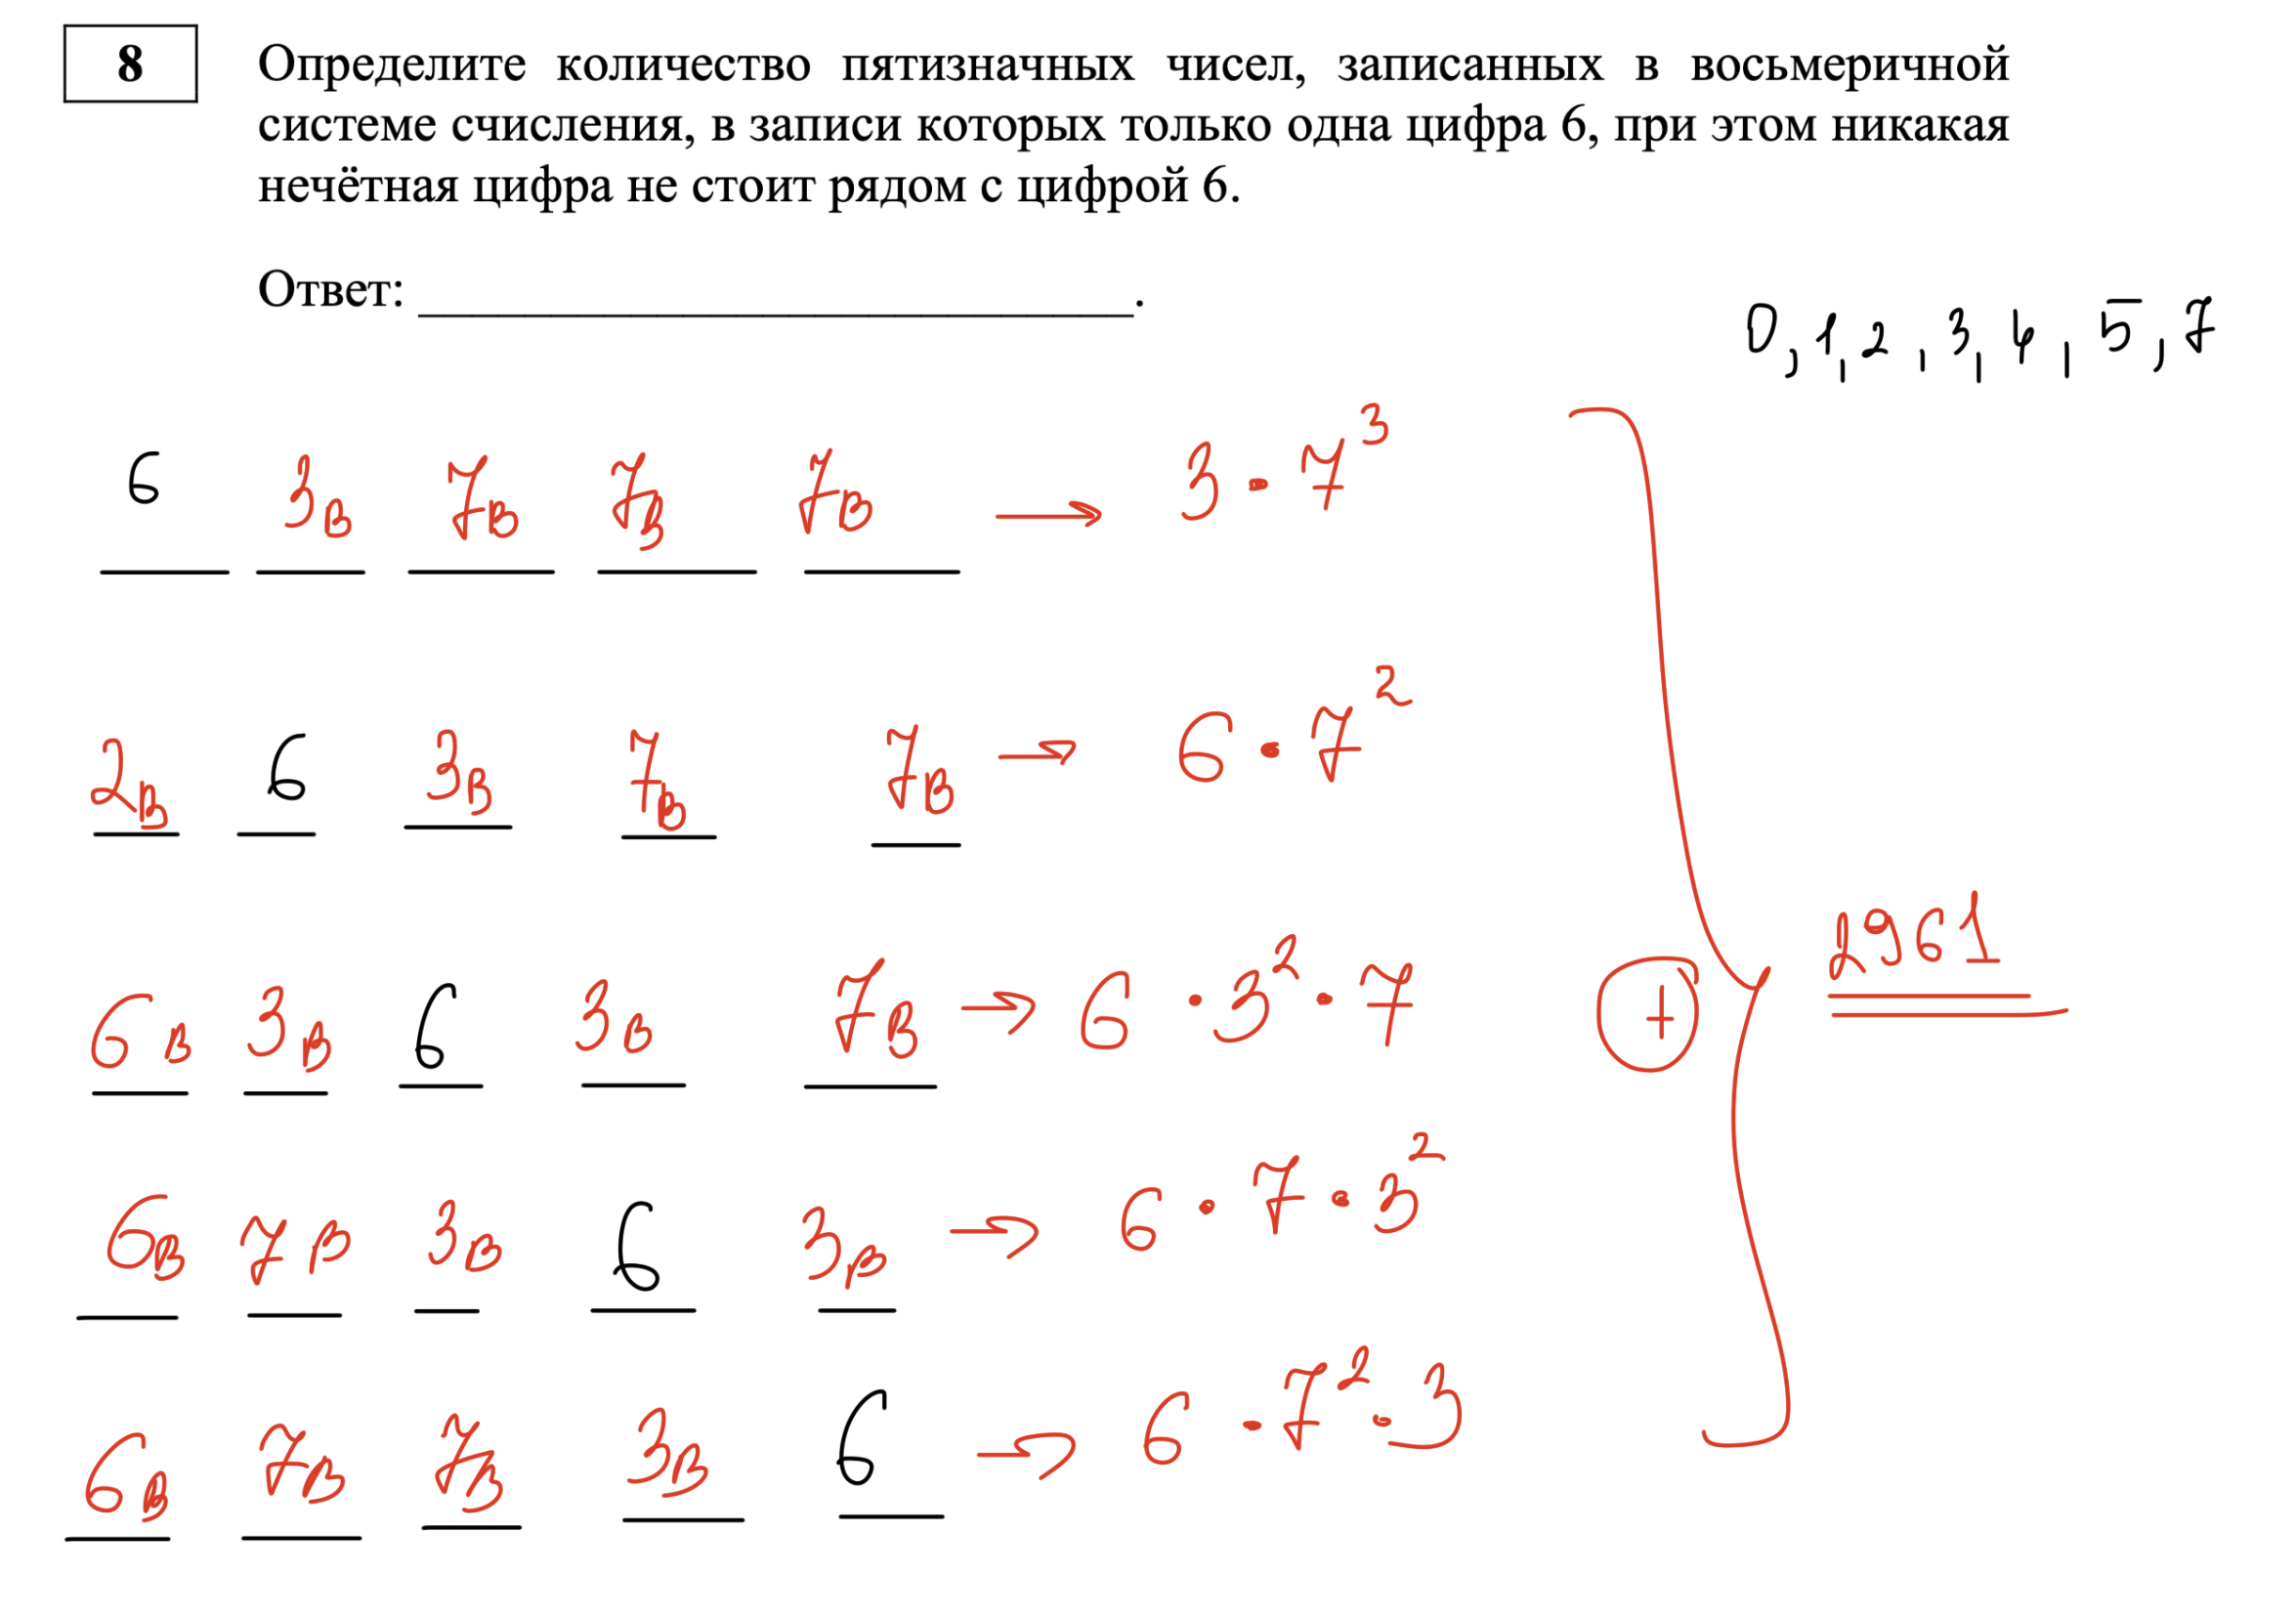 8
Определите количество пятизначных чисел, записанных в восьмеричной
системе счисления, в записи которых только одна цифра 6, при этом никакая
нечётная цифра не стоит рядом с цифрой 6.
Ответ: ___________________________.
0, 1, 2, 3, 4, 5, 7
6 3В 7В 7В 7В → 3 · 7³
2В 6 3В 7В 7В → 6 · 7²
6В 3В 6 3В 7В → 6 · 3² · 7
+ 2961
6В 7В 3В 6 3В → 6 · 7 · 3²
6В 7В 7В 3В 6 → 6 · 7² · 3